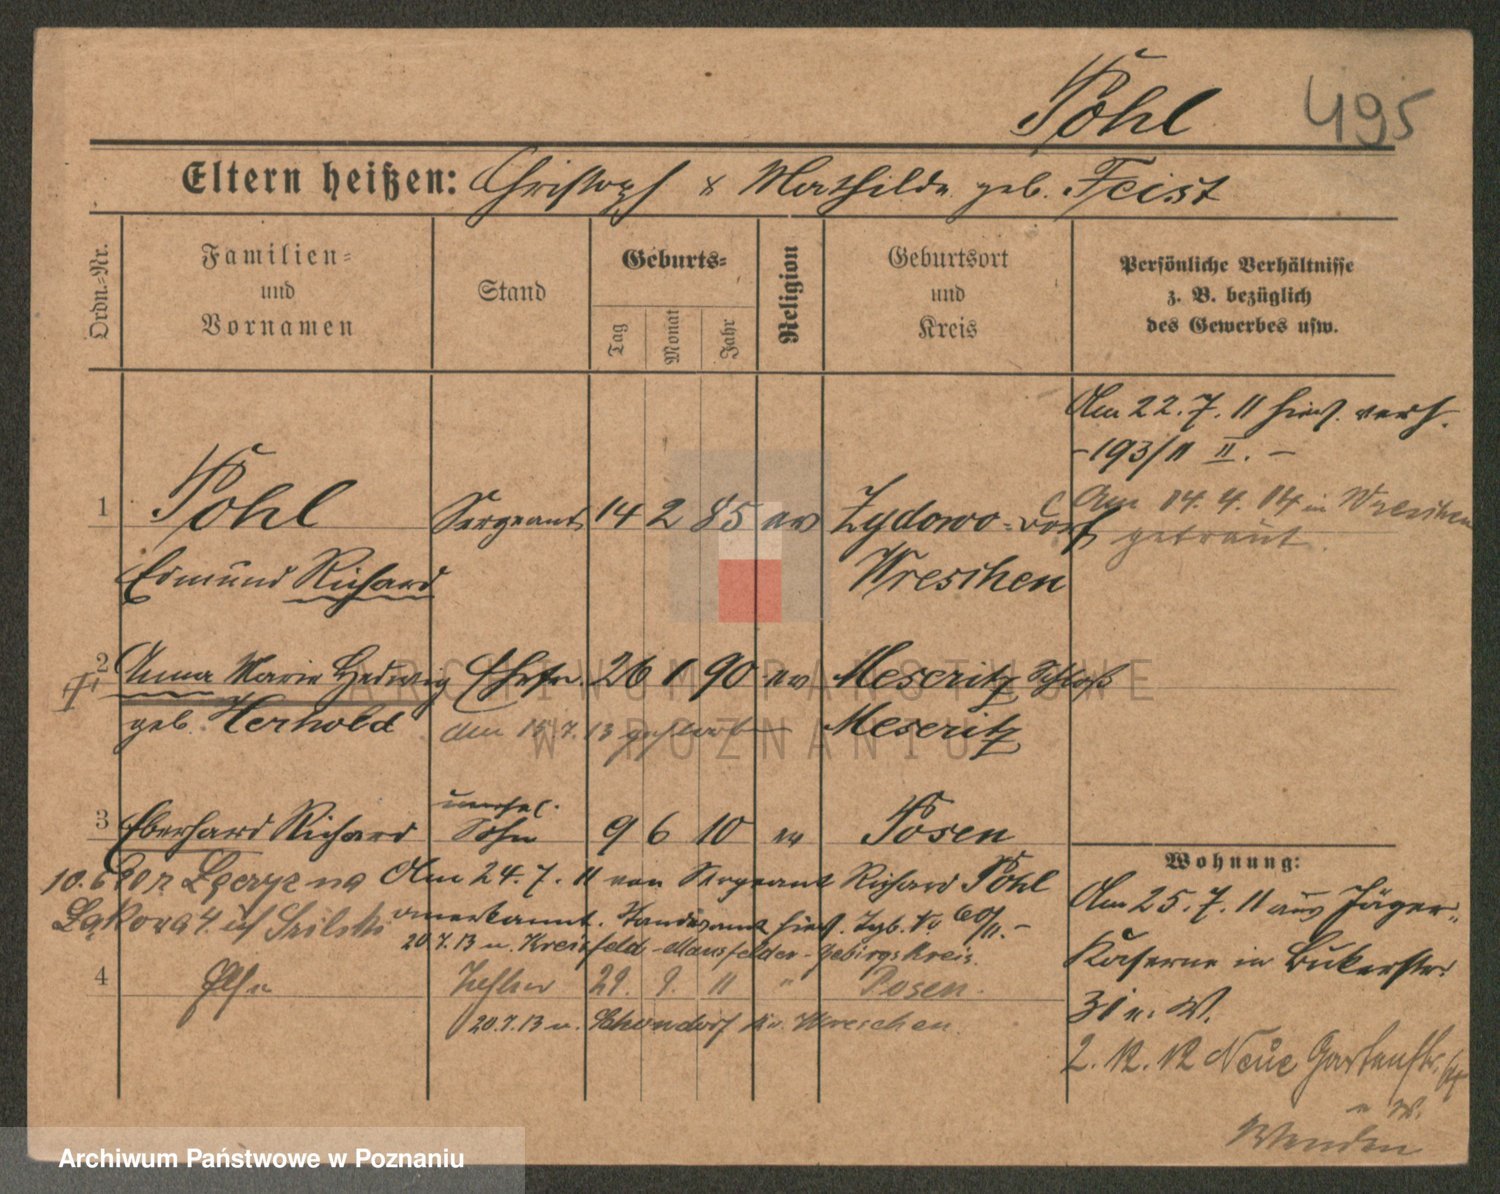 Pohl 495
Eltern heißen: Christoph & Mathilde geb. Feist
Ordn.-Nr.
Familien-
und
Vornamen
Stand
Geburts-
Tag
Monat
Jahr
Religion
Geburtsort
und
Kreis
Persönliche Verhältnisse
z. B. bezüglich
des Gewerbes usw.
Am 22. 7. 11 hies. verh.
-193/11 II. -
1 Pohl Sergeant 14 2 85 ev Zydowo-Dorf
Am 14. 4. 14 in Wreschen
getraut.
Edmund Richard Wreschen
2 Anna Marie Hedwig Ehefr. 26 1 90 ev Meseritz Schloß
geb. Herhold am 15. 7. 13 gestorben Meseritz
unehel.
3 Eberhard Richard Sohn 9 6 10 ev Posen
Am 24. 7. 11 von Sergeant Richard Pohl
anerkannt. Standesamt hies.
20.7.13 n. Kreisfeld-Mansfelder-Gebirgskreis.
4 Else Tochter 29. 9. 11 " Posen.
20.7.13 n. Schondorf Kr. Wreschen.
10.6 20 z Łąkowa 4
Wohnung:
Am 25. 7. 11 aus Jäger-
Kaserne in Bukerstr.
31 n. W.
2. 12. 12 Neue Gartenstr.
n. W.
ARCHIWUM PAŃSTWOWE
W POZNANIU
Archiwum Państwowe w Poznaniu